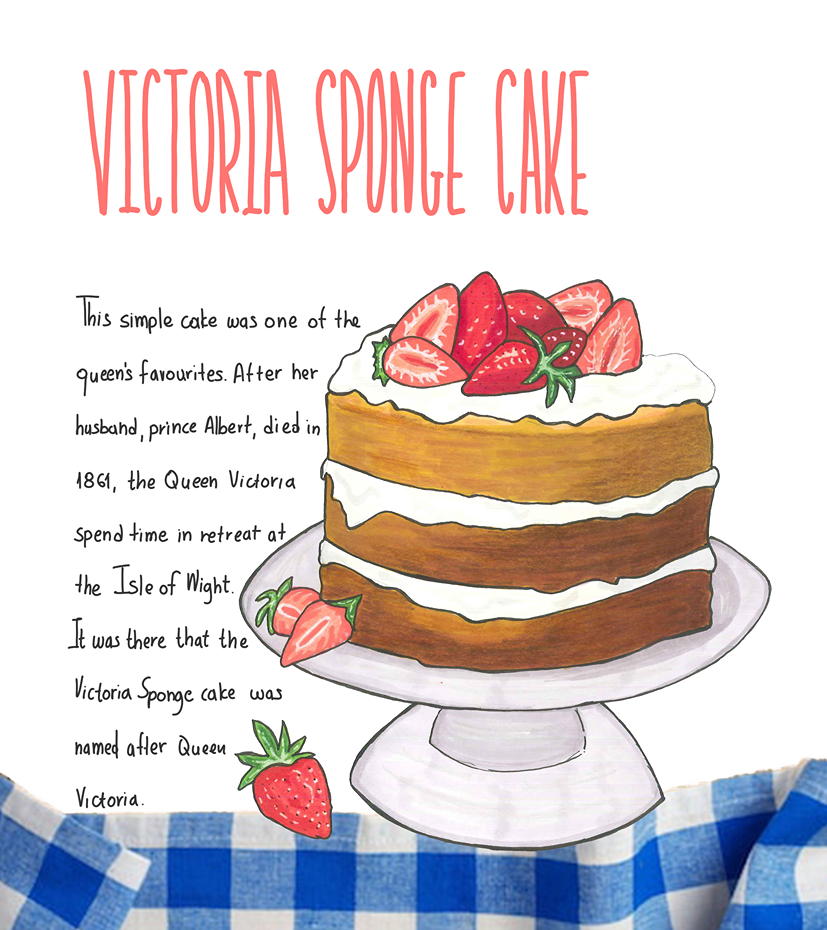 VICTORIA SPONGE CAKE
This simple cake was one of the
queen's favourites. After her
husband, prince Albert, died in
1861, the Queen Victoria
spend time in retreat at
the Isle of Wight.
It was there that the
Victoria Sponge cake was
named after Queen
Victoria.